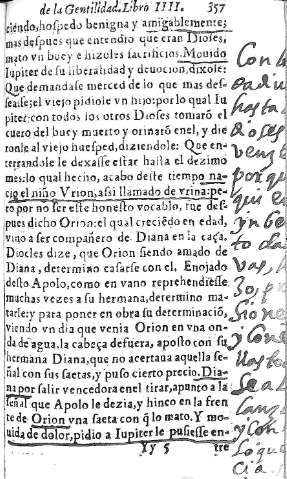 de la Gentilidad. Libro IIII. 357
ciẽdo, hospedo benigna y amigablemente;
mas despues que entendio que eran Dioses,
mato vn buey e hizoles sacrificios. Mouido
Iupiter de su liberalidad y deuocion, dixole:
Que demandasse merced de lo que mas des-
seasse; el viejo pidiole vn hijo: por lo qual Iu
piter con todos los otros Dioses tomarõ el
cuero del buey muerto y orinarõ enel, y die
ronle al viejo huesped, diziendole: Que en-
terrandole le dexasse estar hasta el dezimo
mes: lo qual hecho, acabo deste tiempo na-
cio el niño Vrion, assi llamado de vrina: pe-
ro por no ser este honesto vocablo, fue des-
pues dicho Orion: el qual creciẽdo en edad,
vino a ser compañero de Diana en la caça.
Diocles dize, que Orion siendo amado de
Diana, determino casarse con el. Enojado
desto Apolo, como en vano reprehendiesse
muchas vezes a su hermana, determino ma-
tarle: y para poner en obra su determinació,
viendo vn dia que venia Orion en vna on-
da de agua, la cabeça defuera, aposto con su
hermana Diana, que no acertaua aquella se-
ñal con sus saetas, y puso cierto precio. Dia-
na por salir vencedora enel tirar, apunto a la
señal que Apolo le dezia, y hinco en la fren
te de Orion vna saeta con q̃ lo mato. Y mo-
uida de dolor, pidio a Iupiter le pusiesse en-
Yy 5 tre
Con
hasta
dioses
porque
qui